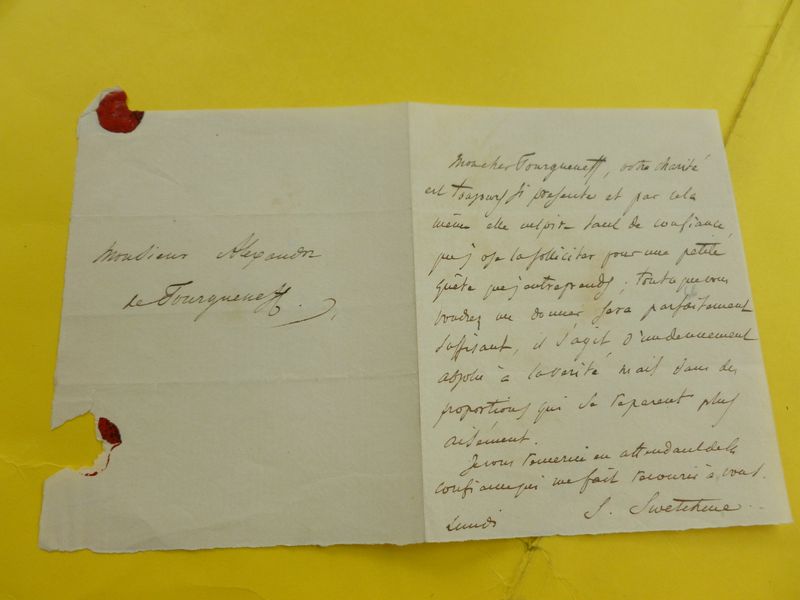 Monsieur Alexandre
de Tourgueneff.
Mon cher Tourgueneff, votre charité
est toujours si presente et par cela
même elle inspire tant de confiance,
que j'ose la solliciter pour une petite
quête que j'entreprends ; tout ce que vous
voudrez me donner sera parfaitement
suffisant, il s'agit d'un dennuement
absolu à la verité mais dans des
proportions qui se reparent plus
aisément.
Je vous remercie en attendant de la
confiance qui me fait recourir à vous.
Lundi S. Swetchine